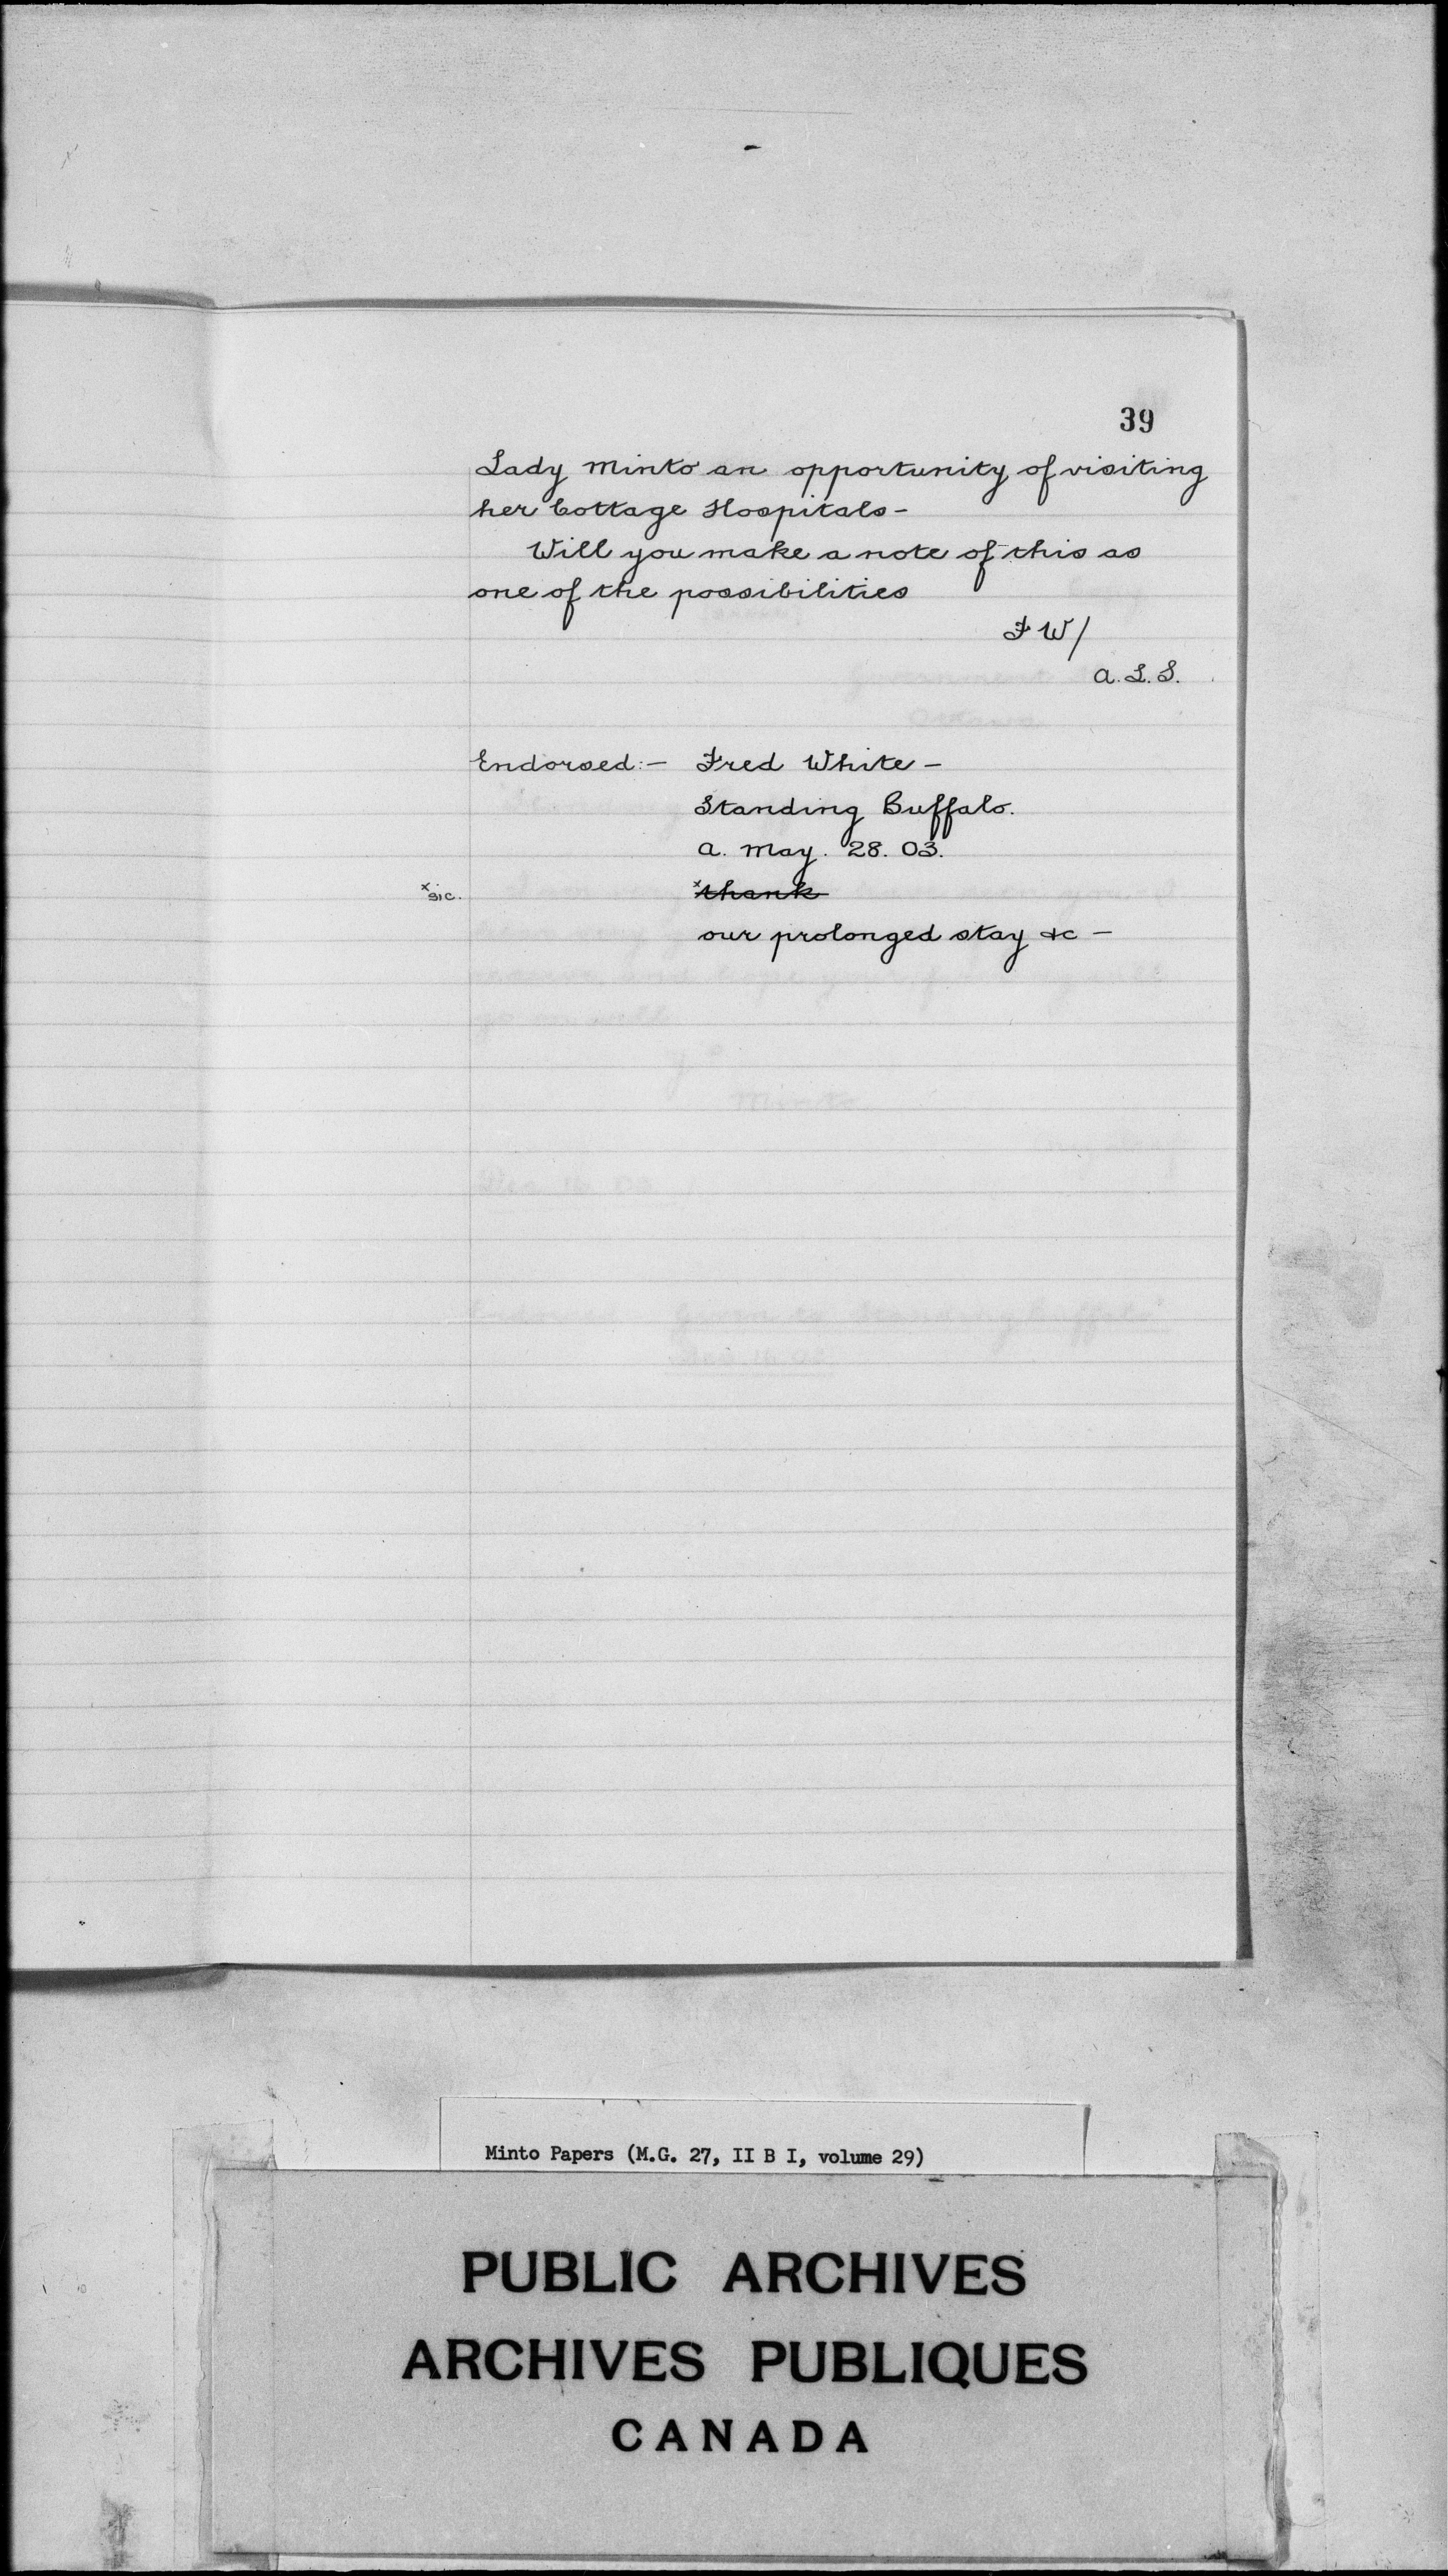 39
Lady Minto an opportunity of visiting
her Cottage Hospitals-
Will you make a note of this as
one of the possibilities
F W/
A.L.S.
Endorsed:- Fred White-
Standing Buffalo.
a. May. 28. 03.
x sic. x thank
our prolonged stay &c -
Minto Papers (M.G. 27, II B I, volume 29)
PUBLIC ARCHIVES
ARCHIVES PUBLIQUES
CANADA